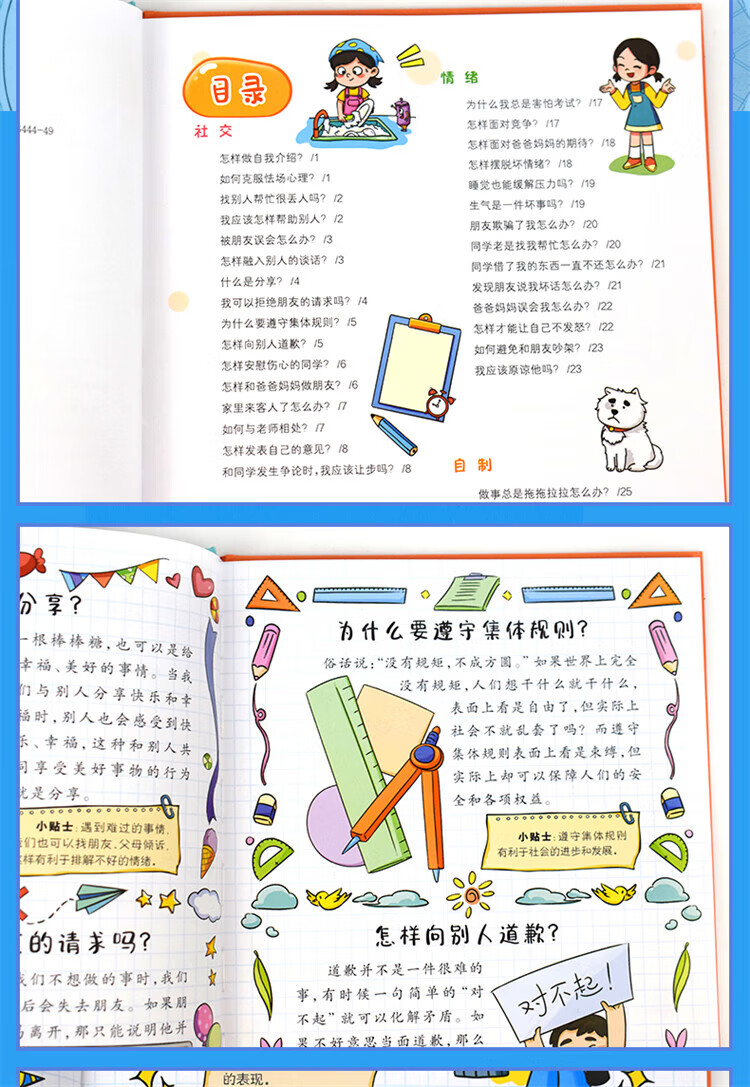 5444-49
目录
社交
怎样做自我介绍？ /1
如何克服怯场心理？ /1
找别人帮忙很丢人吗？ /2
我应该怎样帮助别人？ /2
被朋友误会怎么办？ /3
怎样融入别人的谈话？ /3
什么是分享？ /4
我可以拒绝朋友的请求吗？ /4
为什么要遵守集体规则？ /5
怎样向别人道歉？ /5
怎样安慰伤心的同学？ /6
怎样和爸爸妈妈做朋友？ /6
家里来客人了怎么办？ /7
如何与老师相处？ /7
怎样发表自己的意见？ /8
和同学发生争论时，我应该让步吗？ /8
情绪
为什么我总是害怕考试？ /17
怎样面对竞争？ /17
怎样面对爸爸妈妈的期待？ /18
怎样摆脱坏情绪？ /18
睡觉也能缓解压力吗？ /19
生气是一件坏事吗？ /19
朋友欺骗了我怎么办？ /20
同学老是找我帮忙怎么办？ /20
同学借了我的东西一直不还怎么办？ /21
发现朋友说我坏话怎么办？ /21
爸爸妈妈误会我怎么办？ /22
怎样才能让自己不发怒？ /22
如何避免和朋友吵架？ /23
我应该原谅他吗？ /23
自制
做事总是拖拖拉拉怎么办？ /25
分享？
一根棒棒糖，也可以是给
幸福、美好的事情。当我
们与别人分享快乐和幸
福时，别人也会感受到快
乐、幸福，这种和别人共
同享受美好事物的行为
就是分享。
小贴士：遇到难过的事情，
我们也可以找朋友、父母倾诉，
这样有利于排解不好的情绪。
的请求吗？
我们不想做的事时，我们
后会失去朋友。如果朋
易离开，那只能说明他并
为什么要遵守集体规则？
俗话说：“没有规矩，不成方圆。”如果世界上完全
没有规矩，人们想干什么就干什么，
表面上看是自由了，但实际上
社会不就乱套了吗？而遵守
集体规则表面上看是束缚，但
实际上却可以保障人们的安
全和各项权益。
小贴士：遵守集体规则
有利于社会的进步和发展。
怎样向别人道歉？
道歉并不是一件很难的
事，有时候一句简单的“对
不起”就可以化解矛盾。如
果不好意思当面道歉，那么
对不起！
的表现。